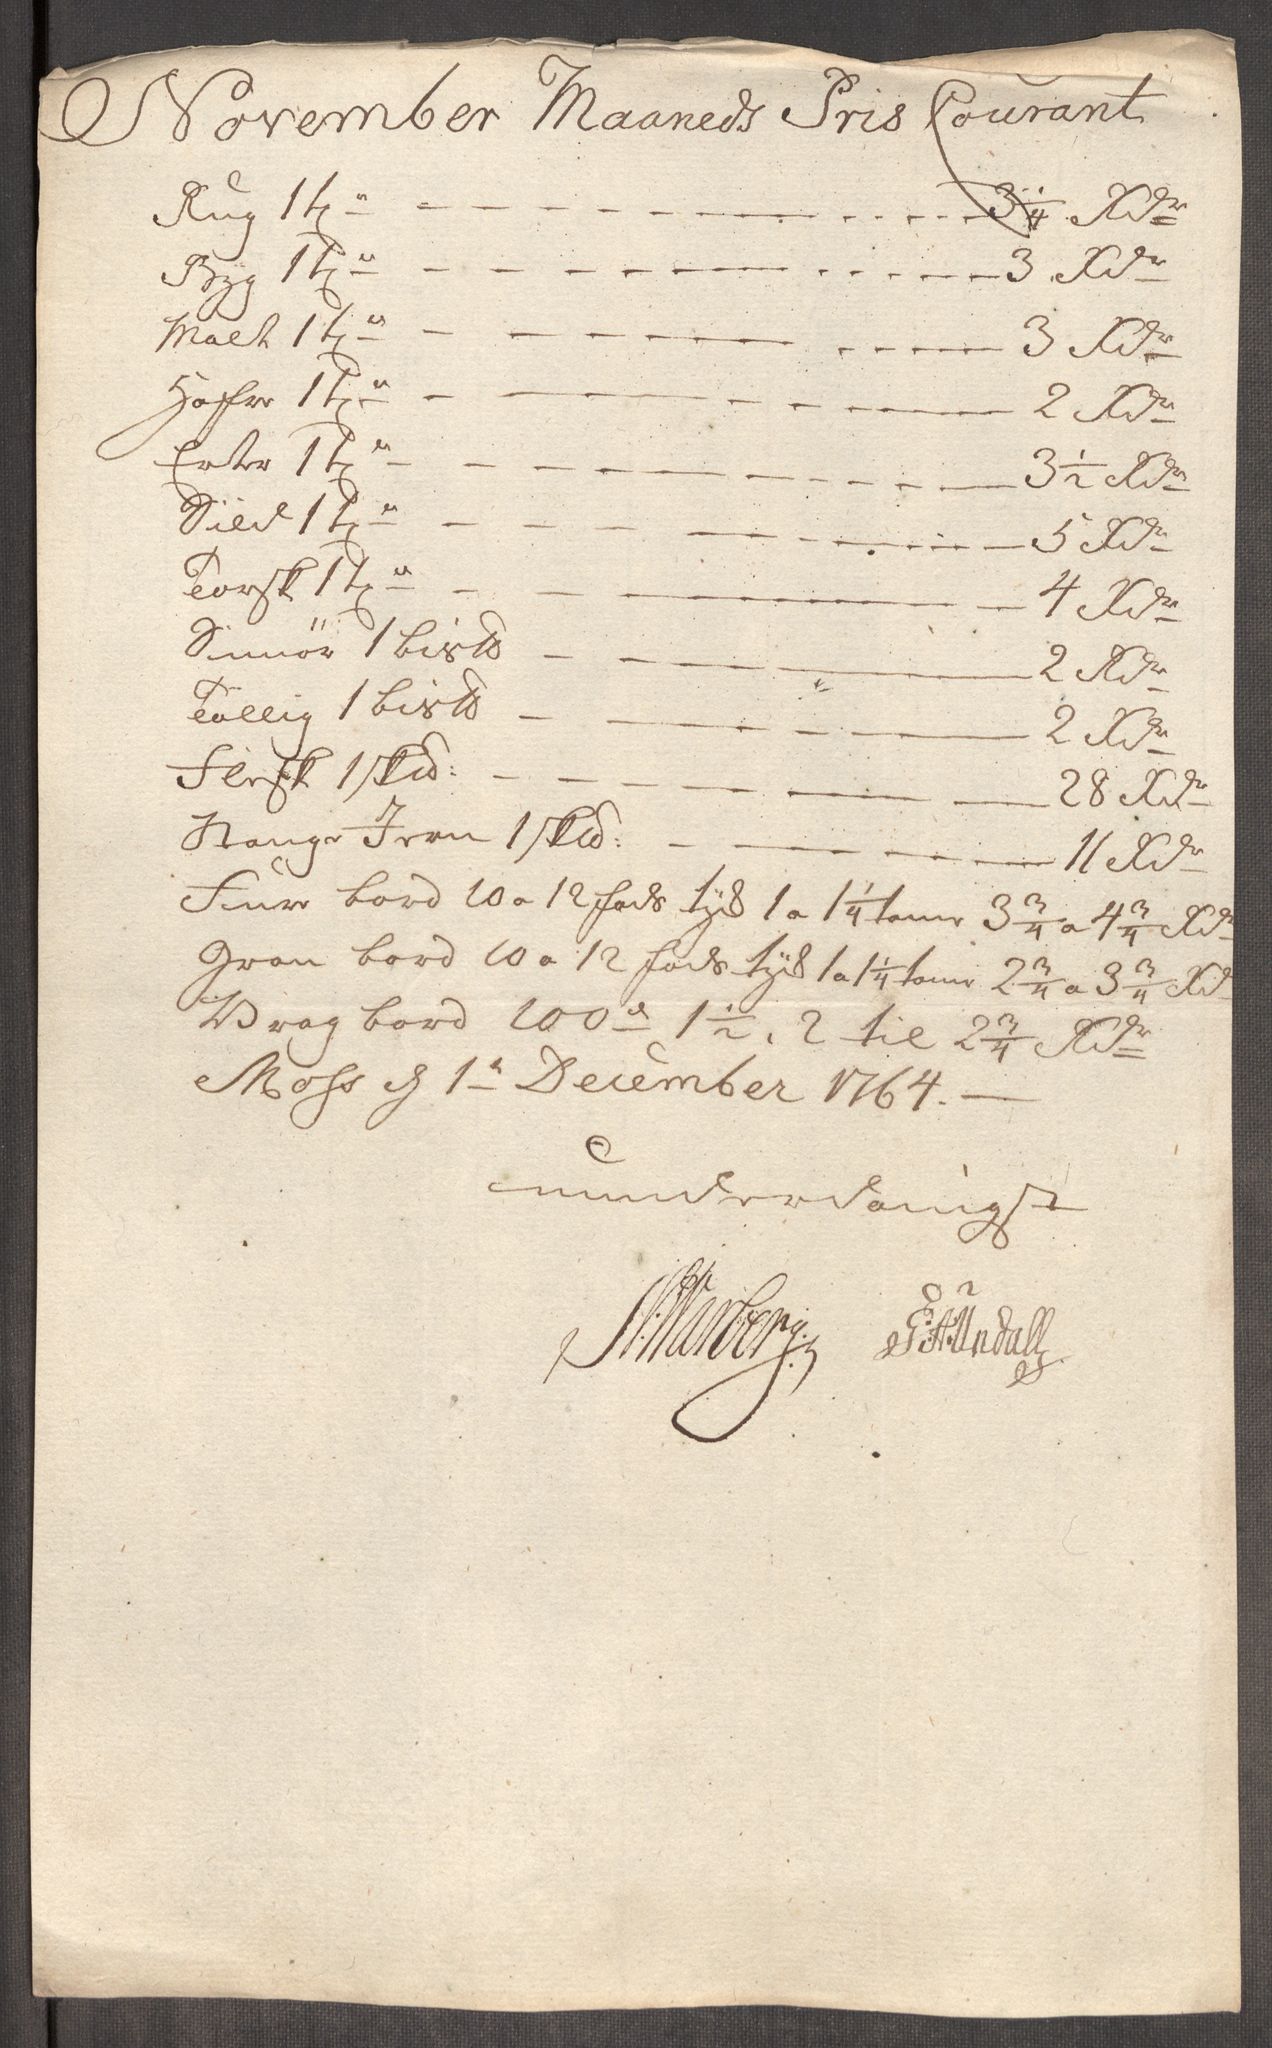 November Maaneds Pris Courant
Rug 1 tɇ 3 1/4 Rdr
Byg 1 tɇ 3 Rdr
Malt 1 tɇ 3 Rdr
Hafre 1 tɇ 2 Rdr
Erter 1 tɇ 3 1/2 Rdr
Sild 1 tɇ 5 Rdr
Torsk 1 tɇ 4 Rdr
Smör 1 bis℔ 2 Rdr
Tallig 1 bis℔ 2 Rdr
Flesk 1 skid: 28 Rdr
Stange Jern 1 skid: 11 Rdr
Fure bord 10 a 12 fods tÿk 1 a 1 1/4 tome 3 3/4 a 4 3/4 Rdr
Gran bord 10 a 12 fods tÿk 1 a 1 1/4 tome 2 3/4 a 3 3/4 Rd
Vrag bord 100de 1 1/2, 2 til 2 3/4 Rdr
Moss d 1te December 1764.
underdanigst
Warberg. Undall